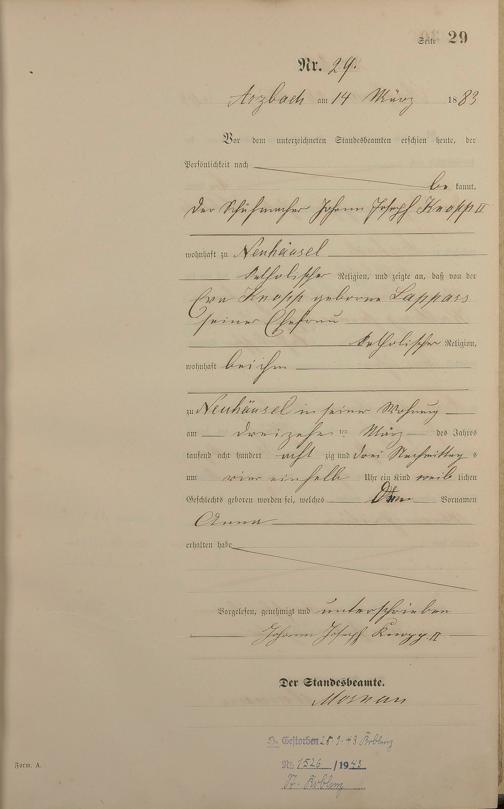 Seite 29
Nr. 29.
Arzbach am 14 März 1883
Vor dem unterzeichneten Standesbeamten erschien heute, der
Persönlichkeit nach
be kannt,
der Schuhmacher Johann Joseph Knopp II
wohnhaft zu Neuhäusel
katholischer Religion, und zeigte an, daß von der
Eva Knopp geborne Lappas
seiner Ehefrau
katholischer Religion,
wohnhaft bei ihm
zu Neuhäusel in seiner Wohnung
am dreizehn ten März des Jahres
tausend acht hundert acht zig und drei Nachmittags
um vier einhalb Uhr ein Kind weib lichen
Geschlechts geboren worden sei, welches Vornamen
Anna
erhalten habe
Vorgelesen, genehmigt und unterschrieben
Johann Joseph Knopp II
Der Standesbeamte.
Gestorben 43
Nr. 1526 /1943
Form. A.